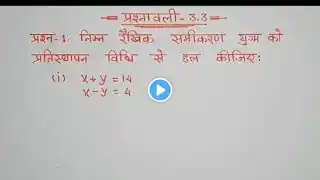 प्रश्नावली-3.3
प्रश्न-1. निम्न रैखिक समीकरण युग्म को
प्रतिस्थापन विधि से हल कीजिए:
(i) x+y=14
x-y=4